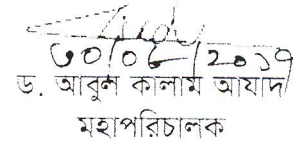 ৩০/০৫/২০১৭
ড. আবুল কালাম আযাদ
মহাপরিচালক